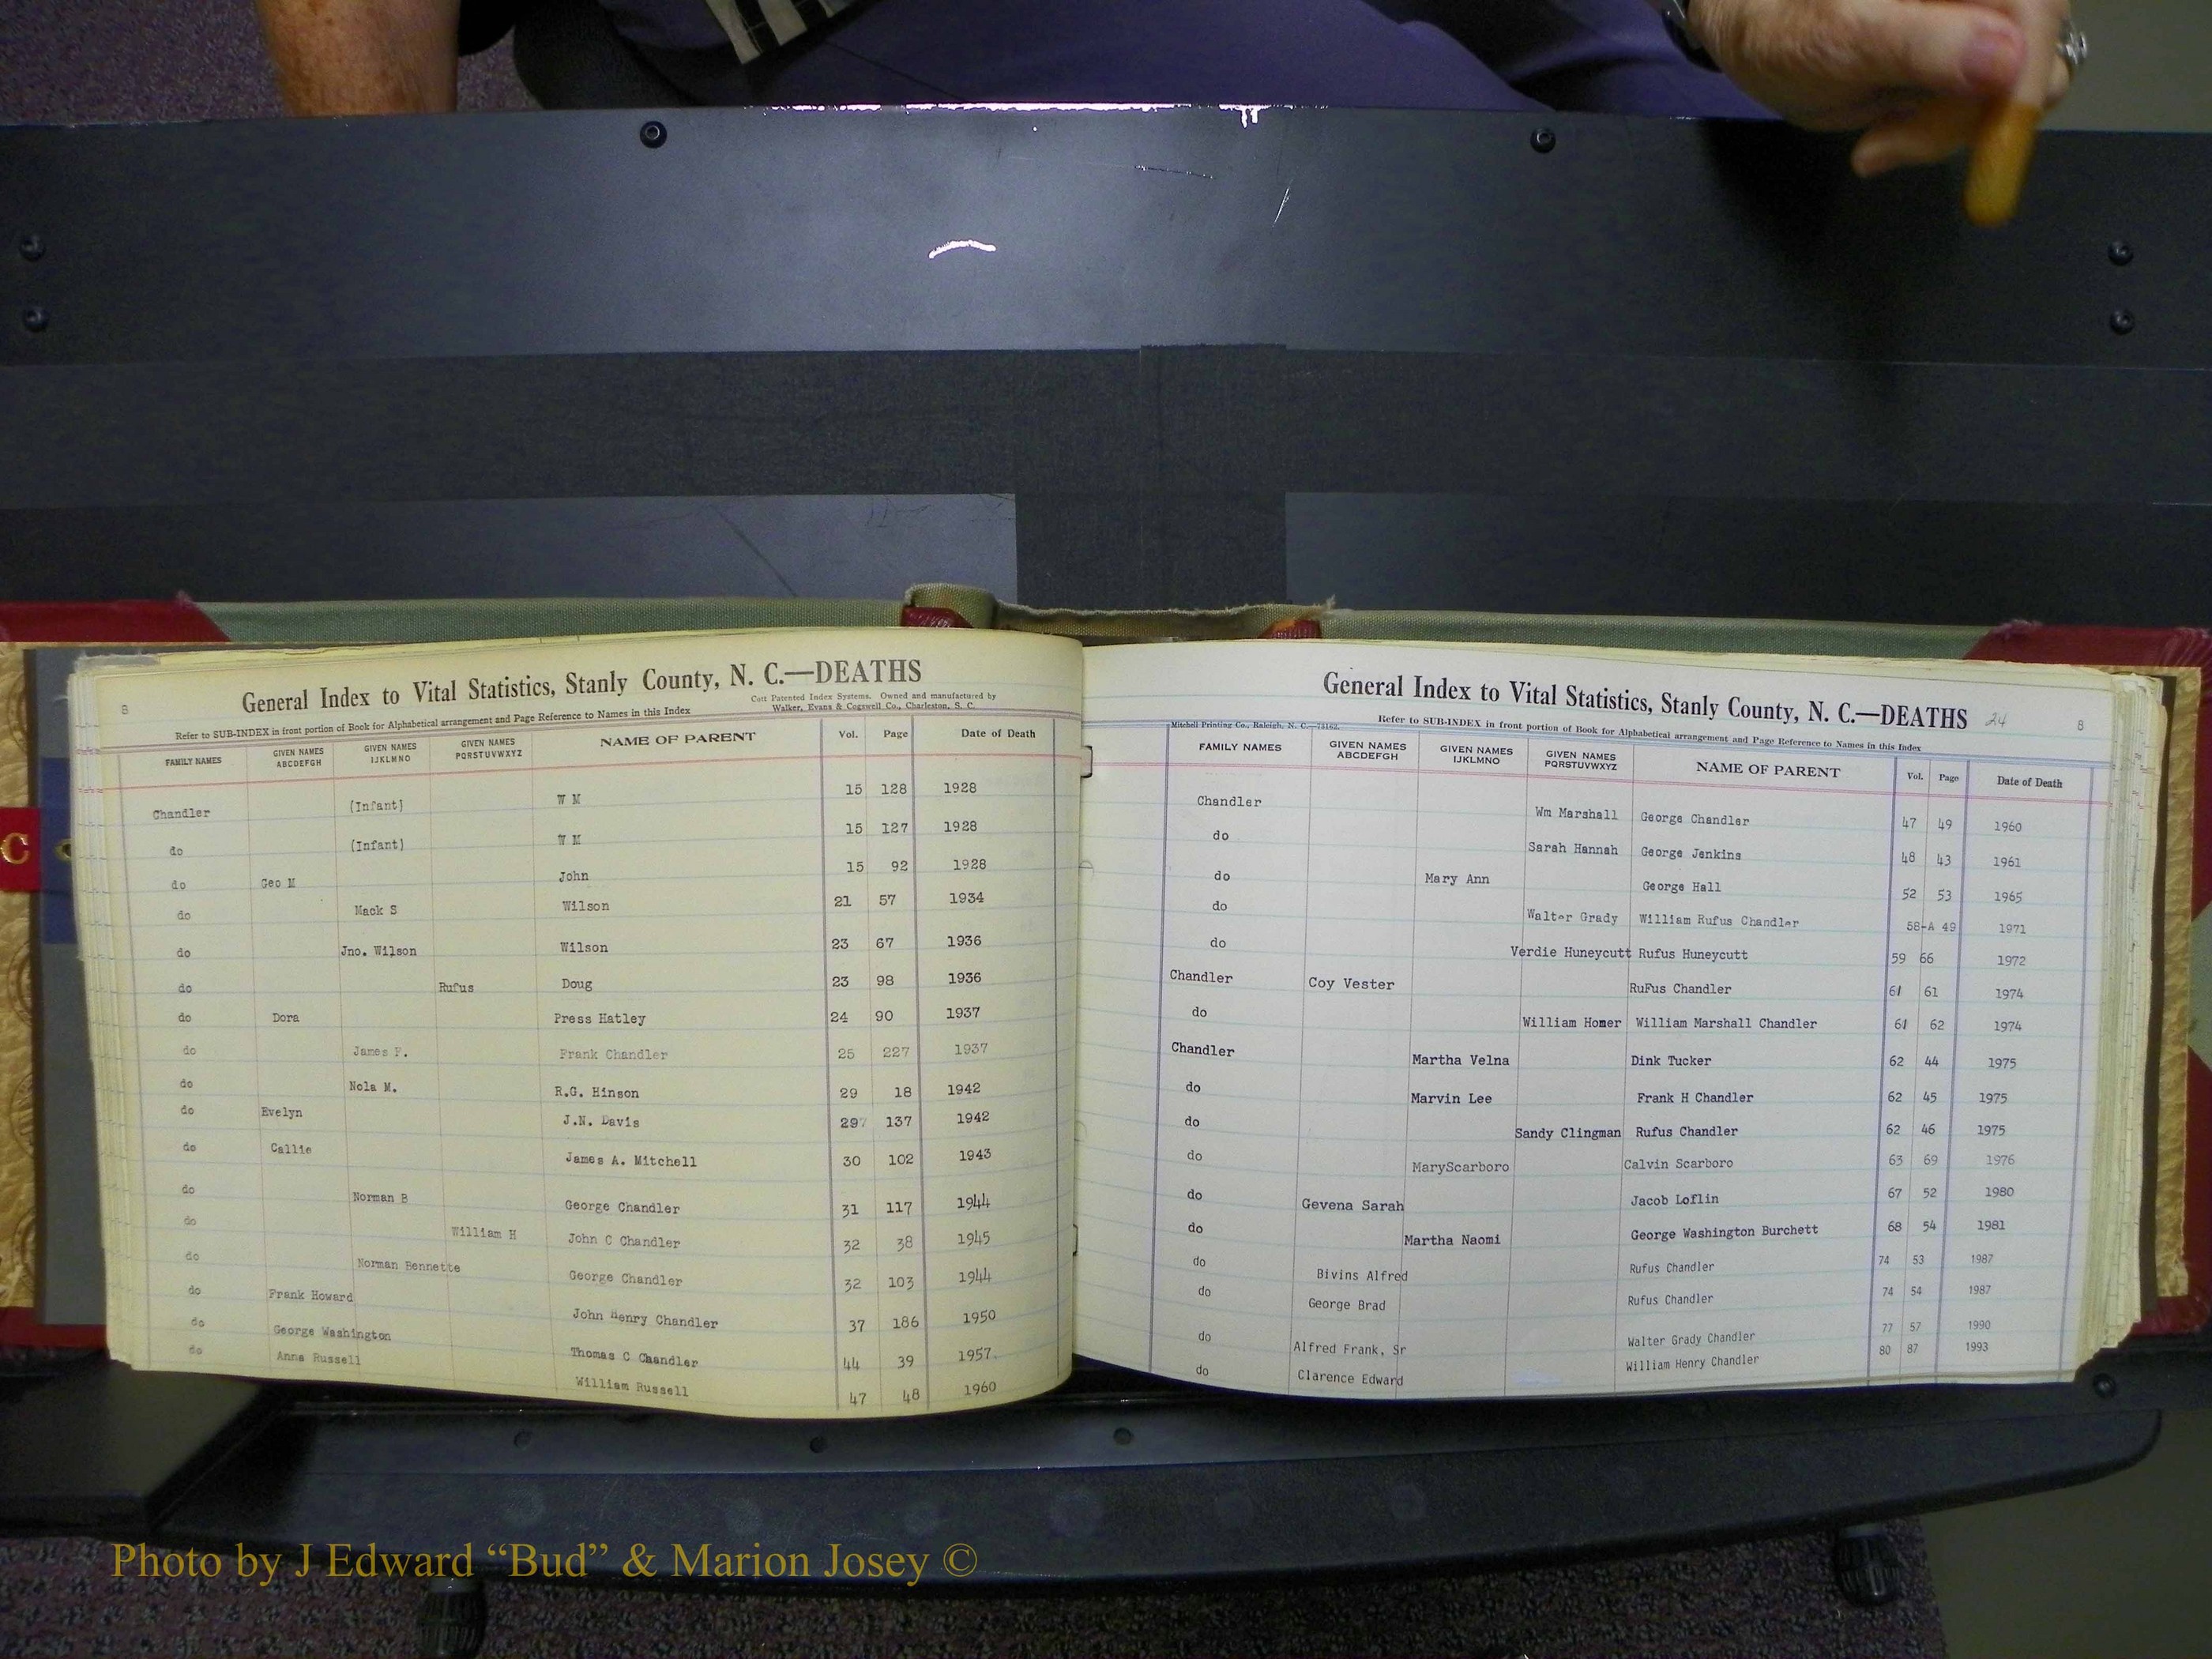 8
General Index to Vital Statistics, Stanly County, N. C.—DEATHS
Cott Patented Index Systems. Owned and manufactured by
Walker, Evans & Cogswell Co., Charleston, S. C.
Refer to SUB-INDEX in front portion of Book for Alphabetical arrangement and Page Reference to Names in this Index
FAMILY NAMES GIVEN NAMES ABCDEFGH GIVEN NAMES IJKLMNO GIVEN NAMES PQRSTUVWXYZ NAME OF PARENT Vol. Page Date of Death
Chandler (Infant) W M 15 128 1928
do (Infant) W M 15 127 1928
do Geo M John 15 92 1928
do Mack S Wilson 21 57 1934
do Jno. Wilson Wilson 23 67 1936
do Rufus Doug 23 98 1936
do Dora Press Hatley 24 90 1937
do James F. Frank Chandler 25 227 1937
do Nola M. R.G. Hinson 29 18 1942
do Evelyn J.N. Davis 297 137 1942
do Callie James A. Mitchell 30 102 1943
do Norman B George Chandler 31 117 1944
do William H John C Chandler 32 38 1945
do Norman Bennette George Chandler 32 103 1944
do Frank Howard John Henry Chandler 37 186 1950
do George Washington Thomas C Chandler 44 39 1957.
do Anna Russell William Russell 47 48 1960
C
General Index to Vital Statistics, Stanly County, N. C.—DEATHS 24 8
Mitchell Printing Co., Raleigh, N. C.—75162.
Refer to SUB-INDEX in front portion of Book for Alphabetical arrangement and Page Reference to Names in this Index
FAMILY NAMES GIVEN NAMES ABCDEFGH GIVEN NAMES IJKLMNO GIVEN NAMES PQRSTUVWXYZ NAME OF PARENT Vol. Page Date of Death
Chandler Wm Marshall George Chandler 47 49 1960
do Sarah Hannah George Jenkins 48 43 1961
do Mary Ann George Hall 52 53 1965
do Walter Grady William Rufus Chandler 58-A 49 1971
do Verdie Huneycutt Rufus Huneycutt 59 66 1972
Chandler Coy Vester RuFus Chandler 61 61 1974
do William Homer William Marshall Chandler 61 62 1974
Chandler Martha Velna Dink Tucker 62 44 1975
do Marvin Lee Frank H Chandler 62 45 1975
do Sandy Clingman Rufus Chandler 62 46 1975
do MaryScarboro Calvin Scarboro 63 69 1976
do Gevena Sarah Jacob Loflin 67 52 1980
do Martha Naomi George Washington Burchett 68 54 1981
do Bivins Alfred Rufus Chandler 74 53 1987
do George Brad Rufus Chandler 74 54 1987
do Alfred Frank, Sr Walter Grady Chandler 77 57 1990
do Clarence Edward William Henry Chandler 80 87 1993
Photo by J Edward “Bud” & Marion Josey ©